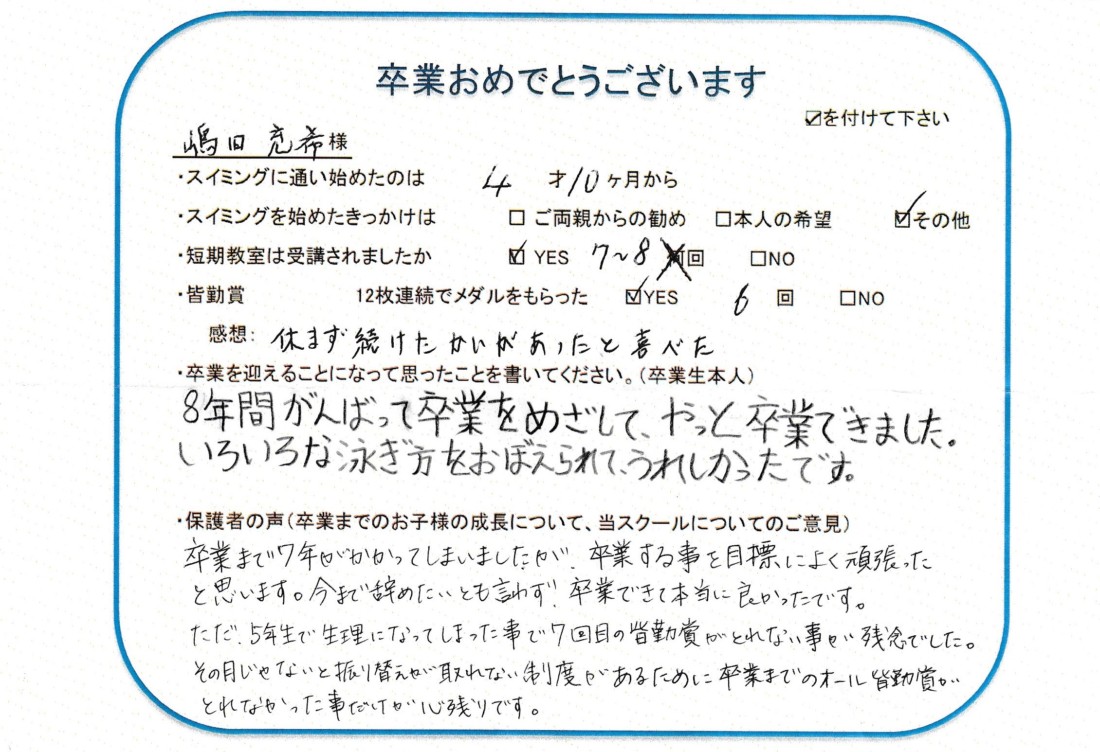 卒業おめでとうございます
☑を付けて下さい
嶋田 充希様
・スイミングに通い始めたのは 4 才10ヶ月から
・スイミングを始めたきっかけは □ ご両親からの勧め □本人の希望 ☑その他
・短期教室は受講されましたか ☑ YES 7~8 回 □NO
・皆勤賞 12枚連続でメダルをもらった ☑YES 6 回 □NO
感想: 休まず続けたかいがあったと喜べた
・卒業を迎えることになって思ったことを書いてください。(卒業生本人)
8年間がんばって卒業をめざして、やっと卒業できました。
いろいろな泳ぎ方をおぼえられて、うれしかったです。
・保護者の声(卒業までのお子様の成長について、当スクールについてのご意見)
卒業まで7年がかかってしまいましたが、卒業する事を目標によく頑張った
と思います。今まで辞めたいとも言わず、卒業できて本当に良かったです。
ただ、5年生で生理になってしまった事で7回目の皆勤賞がとれない事が残念でした。
その月じゃないと振り替えが取れない制度があるために卒業までのオール皆勤賞が
とれなかった事だけが心残りです。